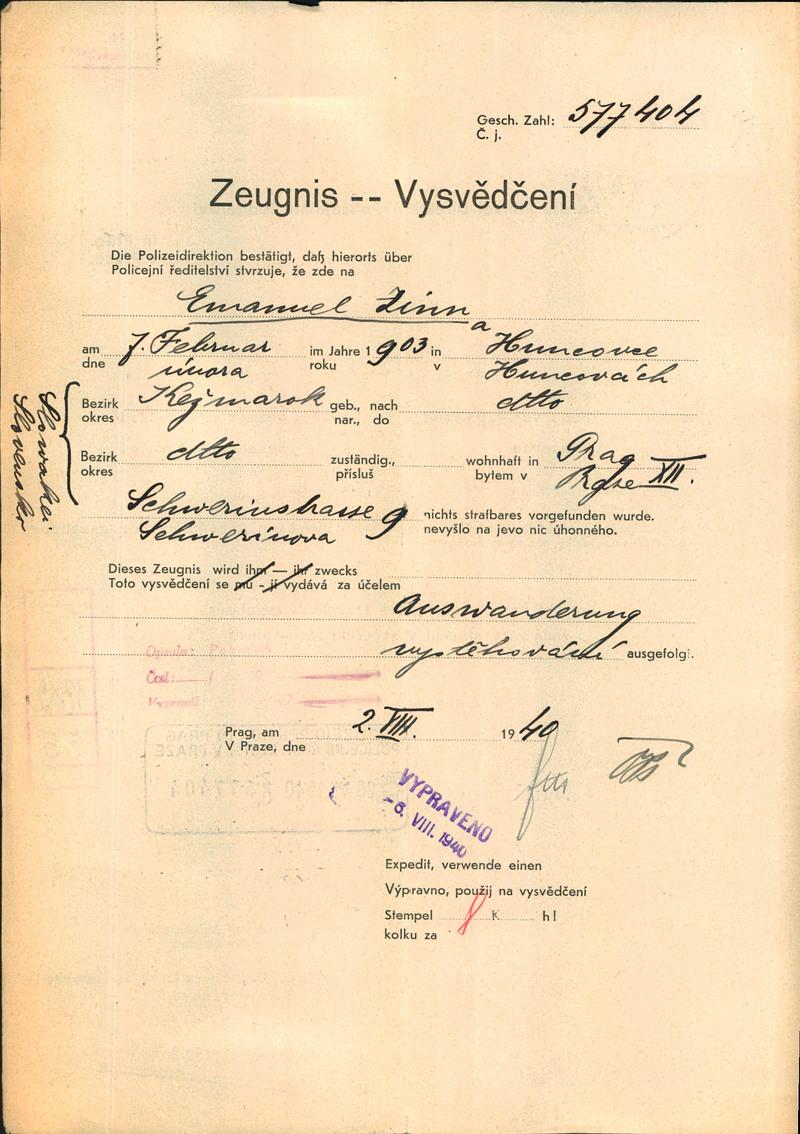 Gesch. Zahl: 577404
Č. j.
Zeugnis -- Vysvědčení
Die Polizeidirektion bestätigt, daß hierorts über
Policejní ředitelství stvrzuje, že zde na
Emanuel Zinn
am 7. Februar im Jahre 1903 in Huncovce
dne února roku v Huncovcách
Bezirk Kežmarok geb., nach dtto
okres nar., do
Bezirk dtto zuständig., wohnhaft in Prag
okres přísluš bytem v Praze XII.
Slowakei
Slovensko
Schwerinstrasse 9 nichts strafbares vorgefunden wurde.
Schwerinova nevyšlo na jevo nic úhonného.
Dieses Zeugnis wird ihm — ihr zwecks
Toto vysvědčení se mu - jí vydává za účelem
Auswanderung
vystěhování ausgefolgt.
Opsala:
Čsl:
Vypravil:
Prag, am 2. VIII. 1940
V Praze, dne
VYPRAVENO
- 6. VIII. 1940
Expedit, verwende einen
Výpravno, použij na vysvědčení
Stempel K h!
kolku za